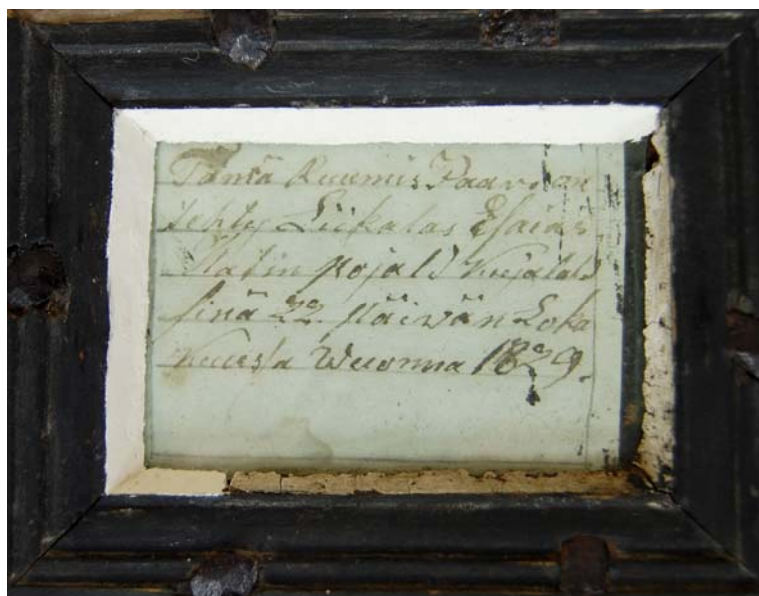 Tämä Ruumis Paari on
tehty Liikalas Esaias
Matin pojald Kujalald
sinä 22 päivän Loka
Kuusa Wuonna 1829.